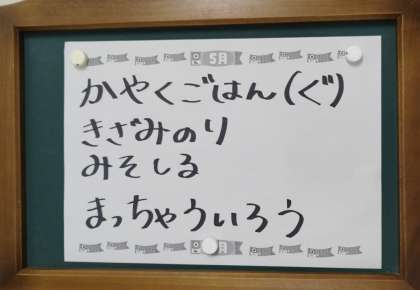 5日
かやくごはん(ぐ)
きざみのり
みそしる
まっちゃういろう